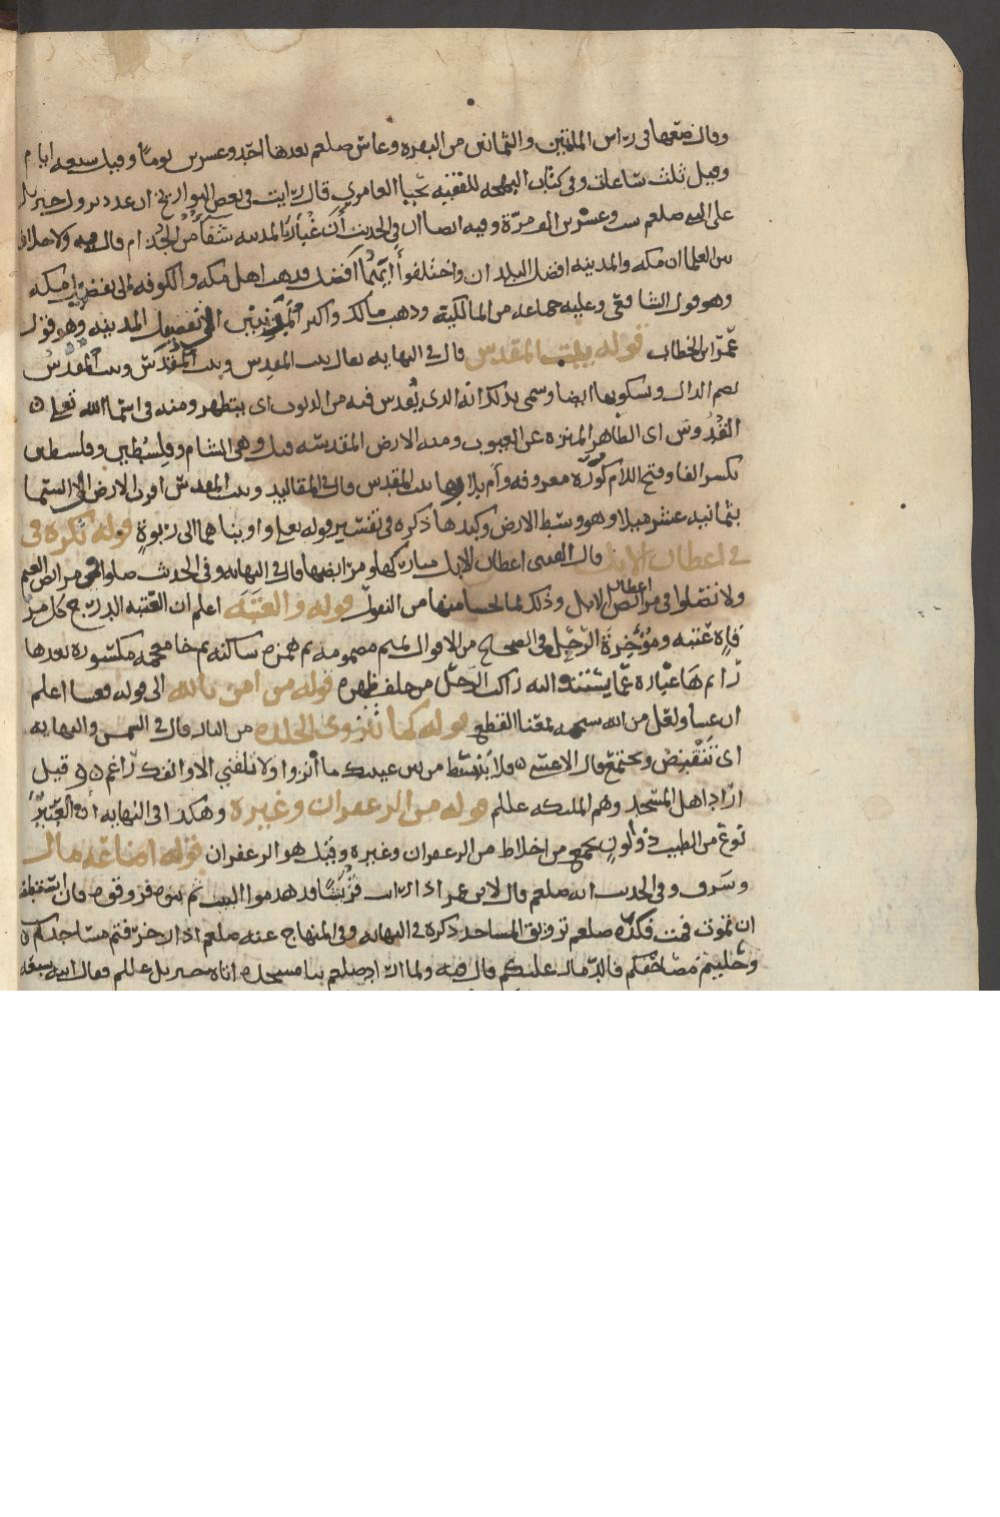 وقال ضعها في راس المائتين والثمانين من البقره وعاش صلعم بعدها احد وعشرين يوما وقيل سبعه ايام
وقيل ثلث ساعات وفي كتاب البهجه للفقيه يحيى العامري قال رايت في بعض التواريخ ان عدد نزول جبريل
على النبي صلعم ست وعشرين الف مرة وفيه ايضا ان في الحديث أن غُبار المدينه شفا من الجذام قال فيه ولا خلاف
بين العلما ان مكه والمدينه افضل البلدان واختلفوا أيتهما أفضل فذهب اهل مكه والكوفه إلى تفضيل مكه
وهو قول الشافعي وعليه جماعه من المالكية وذهب مالك واكثر المدنيين الى تفضيل المدينه وهو قول
عمر ابن الخطاب قوله بيت المقدس قال في النهايه يقال بيت المقدِس وبيت المُقدَّس وبيت المقدس
بضم الدال وسكونها ايضا وسمي بذلك انه الذي يُقدس فيه من الذنوب اي يتطهر ومنه في اسما الله تعلى
القُدُّوس اي الطاهر المنزه عن العيوب ومنه الارض المقدسه قيل وهي الشام وفلسطين وفلسطين
بكسر الفا وفتح اللام كورة معروفه وأم بلادها بيت المقدس قال في المقاليد وبيت المقدس اقرب الارض الى السما
بثمانيه عشر ميلا وهو وسط الارض وكبدها ذكره في تفسير قوله تعلى واويناهما الى ربوةٍ قوله تكره في
في اعطان الابل قال القتيبي اعطان الابل مباركها ومرابضها قال في النهايه وفي الحديث صلوا في مرابض الغنم
ولا تصلوا في اعطان الابل وذلك لما لحسا منها من النفور قوله والعتبه اعلم ان العتبه الدرج كل مر
قاه عتبه ومؤخرة الرحل في الصحاح من الاقوال لميم مضمومه ثم همزه ساكنه ثم خا معجمه مكسوره بعدها
را ثم ها عباره عما يستند اليه راكب الرحل من خلف ظهره قوله من امن بالله الى قوله فعسا اعلم
ان عسا ولعل من الله سبحنه بمعنا القطع قوله كما تنزوى الجلده من النار قال في الشمس والنهايه
اي تنقبض وتجتمع قال الاعشى فلا ينبسط من بين عينيك ما أنزوا ولا تلقني الا وانفك راغم وقيل
اراد اهل المسجد وهم الملئكه عللم قوله من الزعفران وغيره وهكذا في النهايه أن العبير
نوع من الطيب ذو لون يجمع من اخلاط من الزعفران وغيره وقيل هو الزعفران قوله اضاعه مال
وسرف وفي الحديث انه صلعم قال لابن عمر اذا رايت قريشا قد هدموا البيت ثم بنوه فزوقوه فان استطعت
ان تموت فمت فكره صلعم تزويق المساجد ذكره في النهايه وفي المنهاج عنه صلعم اذا زخرفتم مساجدكم
وحليتم مصاحفكم فالدمار عليكم قال فيه ولما اراد صلعم بنا مسجده اتاه جبريل عللم فقال ابنه سبعه